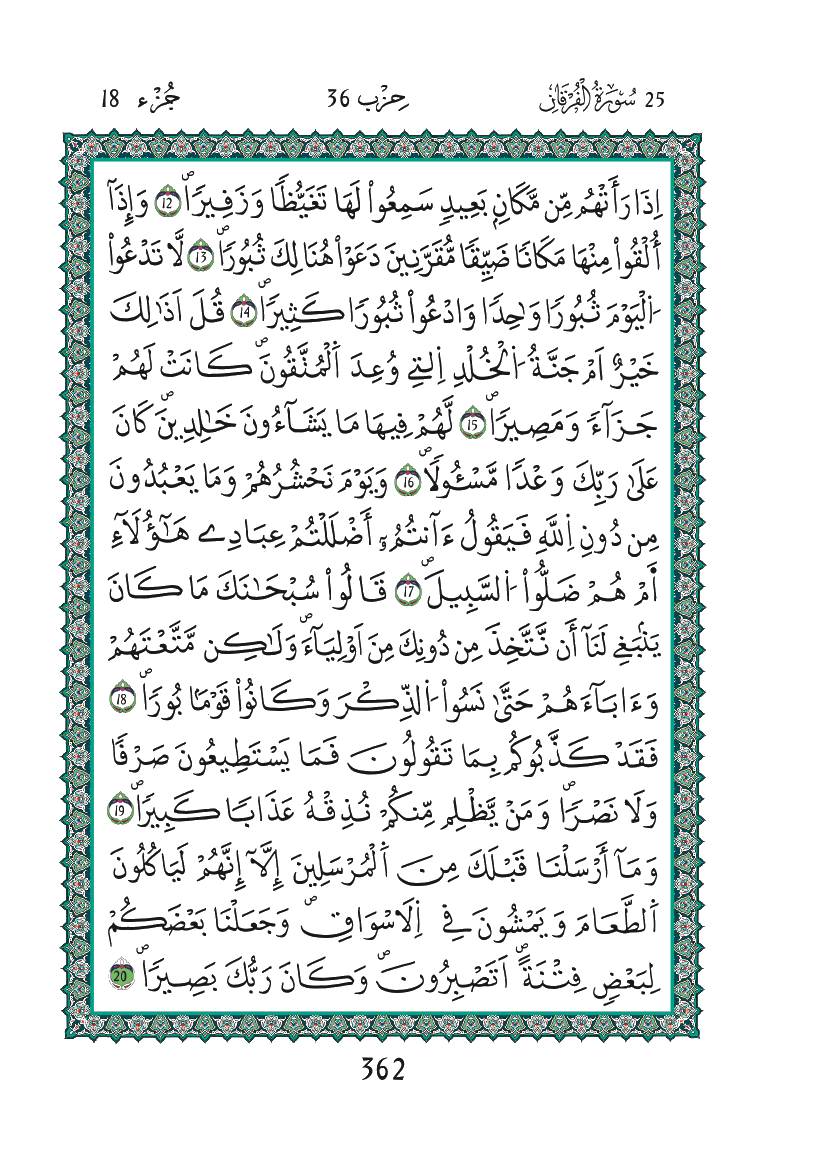 25 سُورَةُ الْفُرْقَانِ حِزْب 36 جُزْء 18
إِذَا رَأَتْهُم مِّن مَّكَانِۢ بَعِيدٖ سَمِعُواْ لَهَا تَغَيُّظٗا وَزَفِيرٗاۖ 12 وَإِذَآ
أُلْقُواْ مِنْهَا مَكَانٗا ضَيِّقٗا مُّقَرَّنِينَ دَعَوْاْ هُنَالِكَ ثُبُورٗاۖ 13 لَّا تَدْعُواْ
اُ۬لْيَوْمَ ثُبُورٗا وَٰحِدٗا وَادْعُواْ ثُبُورٗا كَثِيرٗاۖ 14 قُلَ اَذَٰلِكَ
خَيْرٌ اَمْ جَنَّةُ اُ۬لْخُلْدِ اِ۬لتِے وُعِدَ اَ۬لْمُتَّقُونَۖ كَانَتْ لَهُمْ
جَزَآءٗ وَمَصِيرٗاۖ 15 لَّهُمْ فِيهَا مَا يَشَآءُونَ خَٰلِدِينَۖ كَانَ
عَلَىٰ رَبِّكَ وَعْدٗا مَّسْـُٔولٗاۖ 16 وَيَوْمَ نَحْشُرُهُمْ وَمَا يَعْبُدُونَ
مِن دُونِ اِ۬للَّهِ فَيَقُولُ ءَآنتُمُۥٓ أَضْلَلْتُمْ عِبَادِے هَٰٓؤُلَآءِ
اَ۬مْ هُمْ ضَلُّواْ اُ۬لسَّبِيلَۖ 17 قَالُواْ سُبْحَٰنَكَ مَا كَانَ
يَنۢبَغِے لَنَآ أَن نَّتَّخِذَ مِن دُونِكَ مِنَ اَوْلِيَآءَۖ وَلَٰكِن مَّتَّعْتَهُمْ
وَءَابَآءَهُمْ حَتَّىٰ نَسُواْ اُ۬لذِّكْرَ وَكَانُواْ قَوْمَۢا بُورٗاۖ 18
فَقَدْ كَذَّبُوكُم بِمَا تَقُولُونَ فَمَا يَسْتَطِيعُونَ صَرْفٗا
وَلَا نَصْرٗاۖ وَمَنْ يَّظْلِم مِّنكُمْ نُذِقْهُ عَذَابٗا كَبِيرٗاۖ 19
وَمَآ أَرْسَلْنَا قَبْلَكَ مِنَ اَ۬لْمُرْسَلِينَ إِلَّآ إِنَّهُمْ لَيَاكُلُونَ
اَ۬لطَّعَامَ وَيَمْشُونَ فِے اِ۬لَاسْوَاقِۖ وَجَعَلْنَا بَعْضَكُمْ
لِبَعْضٖ فِتْنَةًۖ اَتَصْبِرُونَۖ وَكَانَ رَبُّكَ بَصِيرٗاۖ 20
362